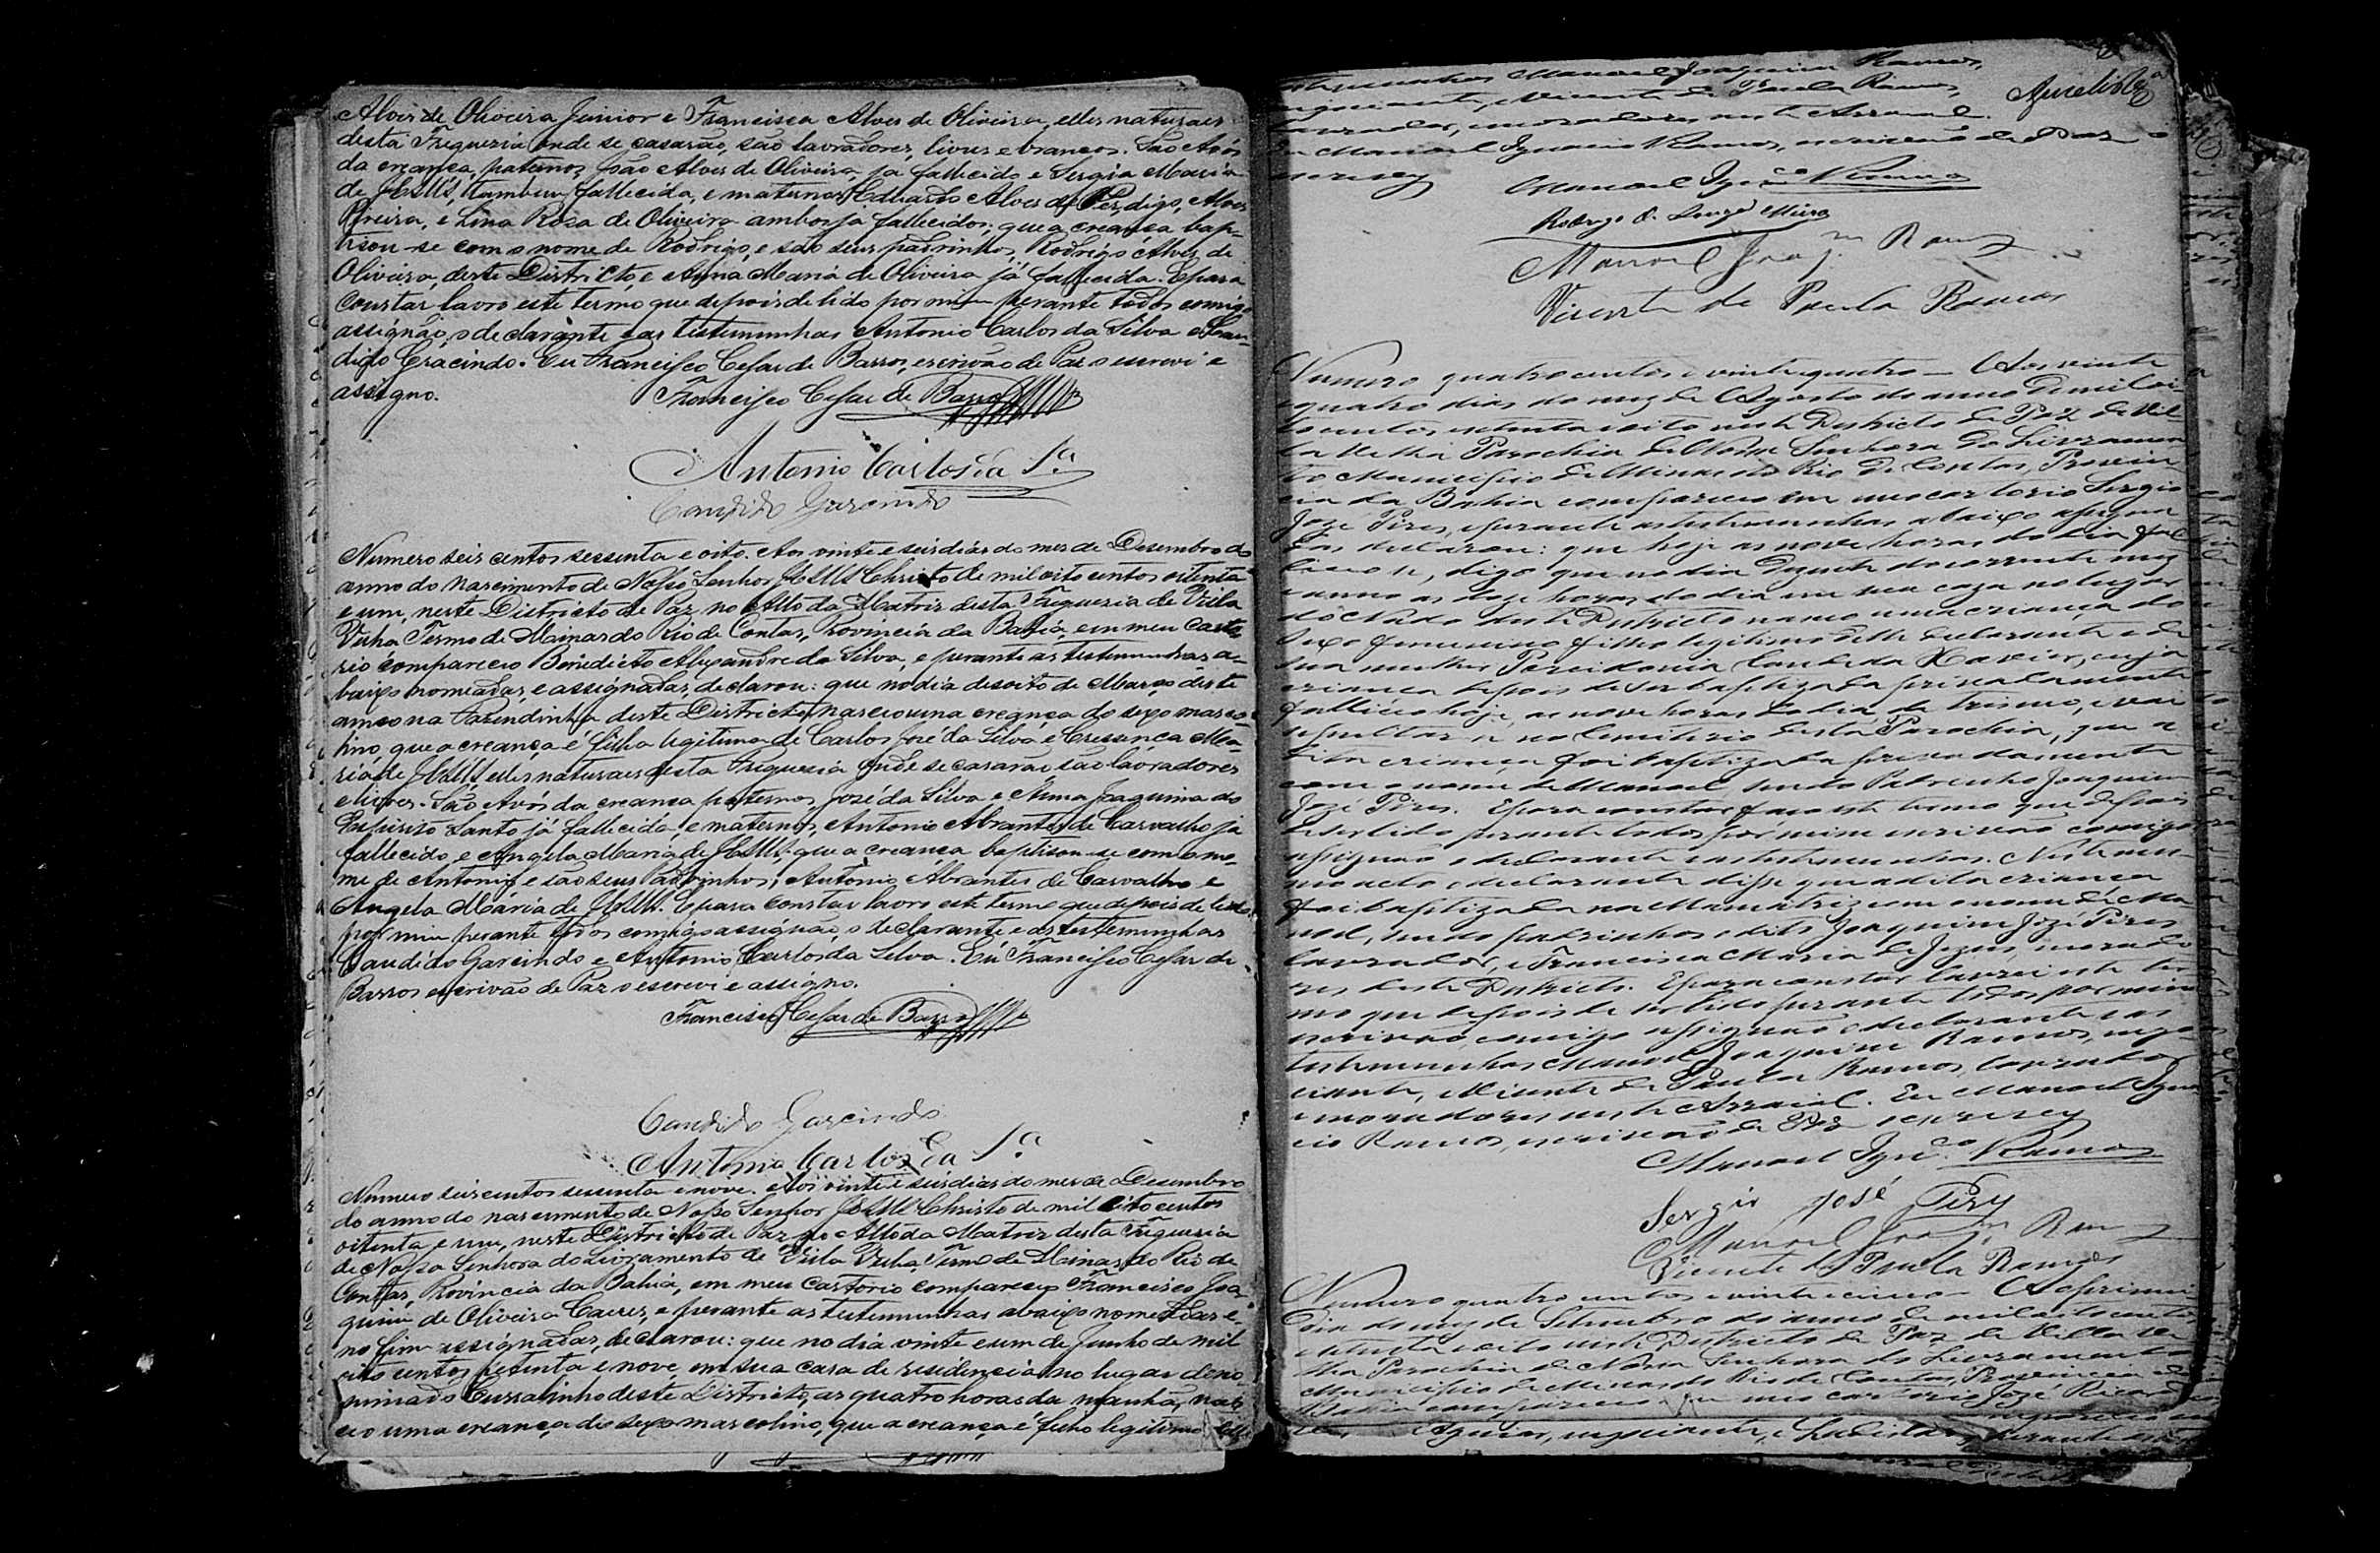 Alves de Oliveira Junior e Francisca Alves de Oliveira, elles naturaes
desta Freguezia onde se casarão, são lavradores, livres e brancos. São Avós
da creança, paternos João Alves de Oliveira, já fallecido e Sergia Maria
de JESUS, tambem fallecida, e maternos Eduardo Alves de Per, digo, Alves
Pereira, e Lina Rosa de Oliveira ambos já fallecidos; que a creança bap-
tisou-se com o nome de Rodrigo, e são seus padrinhos, Rodrigo Alves de
Oliveira, deste Districto, e Anna Maria de Oliveira já fallecida. E para
constar lavro este termo que depois de lido por mim perante todos comigo
assignão, o declarante e as testemunhas Antonio Carlos da Silva e Can-
dido Gracindo. Eu Francisco Cesar de Barros, escrivão de Paz o escrevi e
assigno.
Francisco Cesar de Barros
Antonio Carlos da Sª
Candido Garcindo
Numero seis centos sessenta e oito. Aos vinte e seis dias do mes de Desembro do
anno do nascimento de Nosso Senhor JESUS Christo de mil oito centos oitenta
e um, neste Districto de Paz no Alto da Matriz desta Freguezia de Villa
Velha Termo de Minas do Rio de Contas, Provincia da Bahia, em meu carto
rio compareceo Benedicto Alexandre da Silva, e perante as testemunhas a-
baixo nomeadas, e assignadas, declarou: que no dia desoito de Março deste
anno na Fasendinha deste Districto, nasceo uma creança do sexo mascu-
lino, que a creança é filha legitima de Carlos José da Silva e Cressenca Ma-
ria de JESUS, elles naturaes desta Freguezia onde se casarão são lavradores
e livres. São Avós da creança paternos, José da Silva e Anna Joaquina do
Espirito Santo já fallecida, e maternos, Antonio Abrantes de Carvalho já
fallecido, e Angela Maria de JESUS, que a creança baptisou-se com o no-
me de Antonio, e são seus Padrinhos, Antonio Abrantes de Carvalho e
Angela Maria de JESUS. E para constar lavro este termo que depois de lido
por mim perante todos comigo assignão, o declarante e as testemunhas
Candido Garcindo e Antonio Carlos da Silva. Eu Francisco Cesar de
Barros escrivão de Paz o escrevi e assigno.
Francisco Cesar de Barros
Candido Garcindo
Antonio Carlos da Sª
Numero seis centos sessenta e nove. Aos vinte e seis dias do mes de Desembro
do anno do nascimento de Nosso Senhor JESUS Christo de mil oito centos
oitenta e um, neste Districto de Paz no Alto da Matriz desta Freguezia
de Nossa Senhora do Livramento de Villa Velha, Termo de Minas do Rio de
Contas, Provincia da Bahia, em meu Cartorio compareceo Francisco Joa
quim de Oliveira Caires, e perante as testemunhas abaixo nomeadas e
no fim assignadas, declarou: que no dia vinte e um de Junho de mil
oito centos setenta e nove em sua casa de residencia no lugar deno
minado Curralinho deste Districto, as quatro horas da manhã, nas
ceo uma creança do sexo masculino, que a creança é filho legitimo
testemunhas Manoel Joaquim Ramos,
negociante, e Vicente de Paula Ramos,
lavrador, moradores neste Arraial.
Eu Manoel Ignacio Ramos, escrivão de Paz o
escrevy
Manoel Igncº Ramos
Rodrigo de Souza Meira
Manoel Joaqm Ramos
Vicente de Paula Ramos
Numero quatro centos e vinte quatro — Aos vinte
e quatro dias do mez de Agosto do anno de mil oi-
to centos e setenta e oito neste Districto de Paz de Vil-
la Velha Parochia de Nossa Senhora do Livramen
to Municipio de Minas do Rio de Contas, Provin
cia da Bahia compareceu em meu cartorio Sergio
José Pires, e perante as testemunhas abaixo assigna
das declarou: que hoje as nove horas do dia fal
leceo-se, digo que no dia dezesete do corrente mez
e anno as doze horas do dia em sua caza no lugar
do deste Districto nasceo uma criança do
sexo femenino filho legitimo delle declarante e de
sua mulher Poscidonia Candida Xavier, cuja
criança depois de ser baptizada privadamente
falleceo hoje, as nove horas do dia de trismo, e vai
sepultar-se no Cemiterio desta Parochia, que a
dita criança foi baptizada privadamente
com o nome de Manoel sendo Padrinho Joaquim
José Pires. E para constar faço este termo que depois
de ser lido perante todos por mim escrivão comigo
assignão o declarante e as testemunhas. Neste mes-
mo acto o declarante disse que a dita criança
foi baptizada na Mamatriz com o nome de Ma
noel, sendo padrinhos o dito Joaquim José Pires
lavrador, e Francisca Maria de Jezus, morado
res deste Districto. E para constar lavrei este ter
mo que depois de ser lido perante todos por mim
escrivão comigo assignão o declarante e as
testemunhas Manoel Joaquim Ramos, nego
ciante, e Vicente de Paula Ramos, lavrador
e moradores neste Arraial. Eu Manoel Igna
cio Ramos, escrivão de Paz o escrevy
Manoel Igncº Ramos
Sergio José Pirz
Manoel Joaqm Ramos
Vicente de Paula Ramos
Numero quatro centos e vinte cinco — Ao primeiro
dia do mez de Setembro do anno de mil oito centos
e setenta e oito neste Districto de Paz de Villa Ve
lha Parochia de Nossa Senhora do Livramento
Municipio de Minas do Rio de Contas, Provincia da
Bahia compareceu em meu cartorio José Ricardo